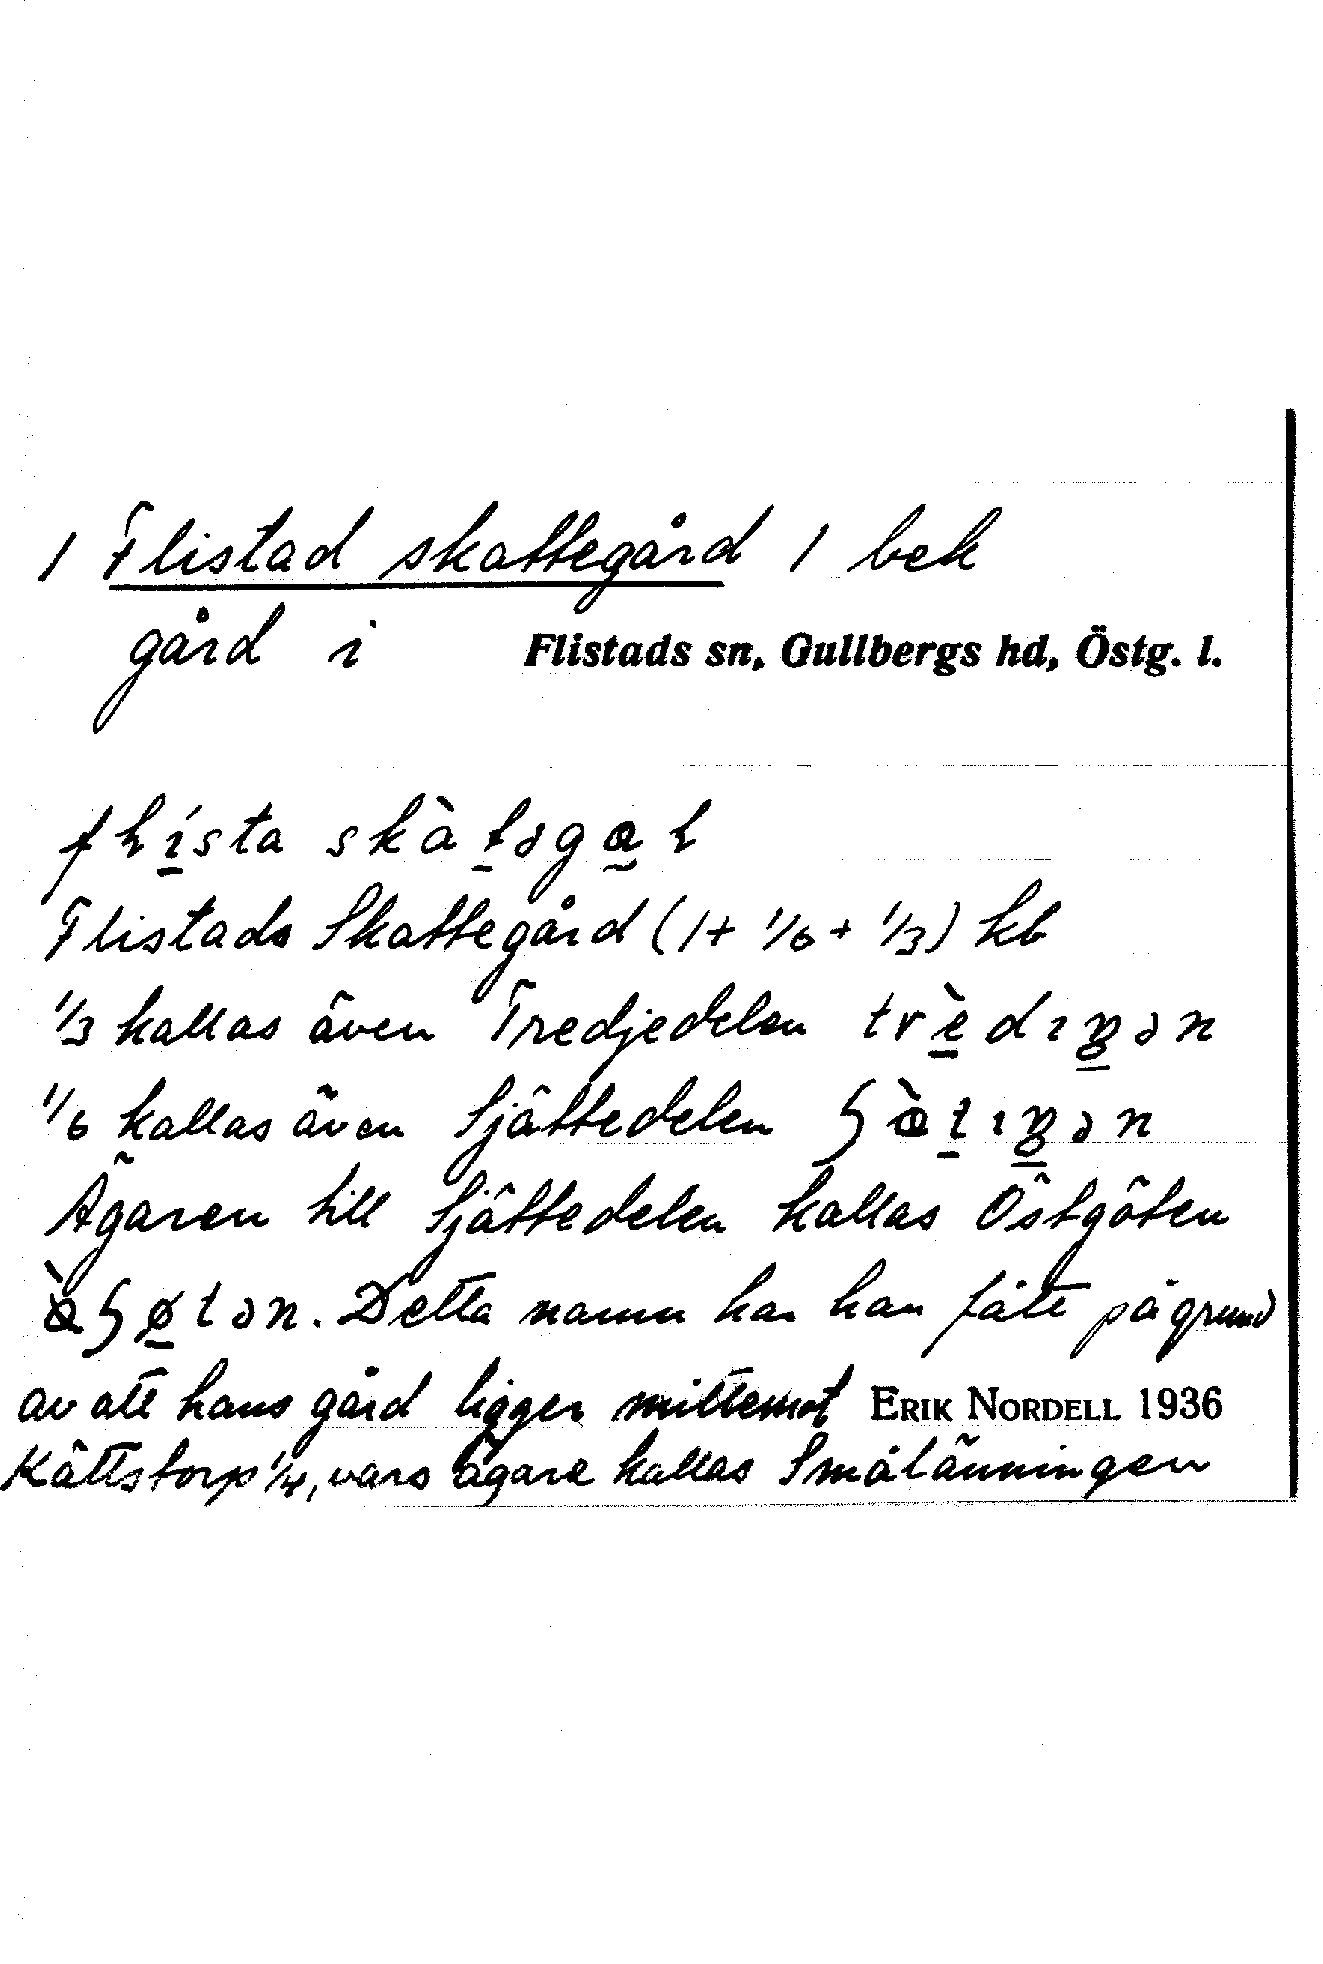 1 Flistad skattegård 1 bek
gård i Flistads sn, Gullbergs hd, Östg. l.
Flistads Skattegård (1+ 1/6 + 1/3) kb
1/3 kallas även Tredjedelen
1/6 kallas även Sjättedelen
Ägaren till Sjättedelen kallas Östgöten
Detta namn har han fått på grund
av att hans gård ligger mittemot ERIK NORDELL 1936
Kättstorp 1/4, vars ägare kallas Smålänningen